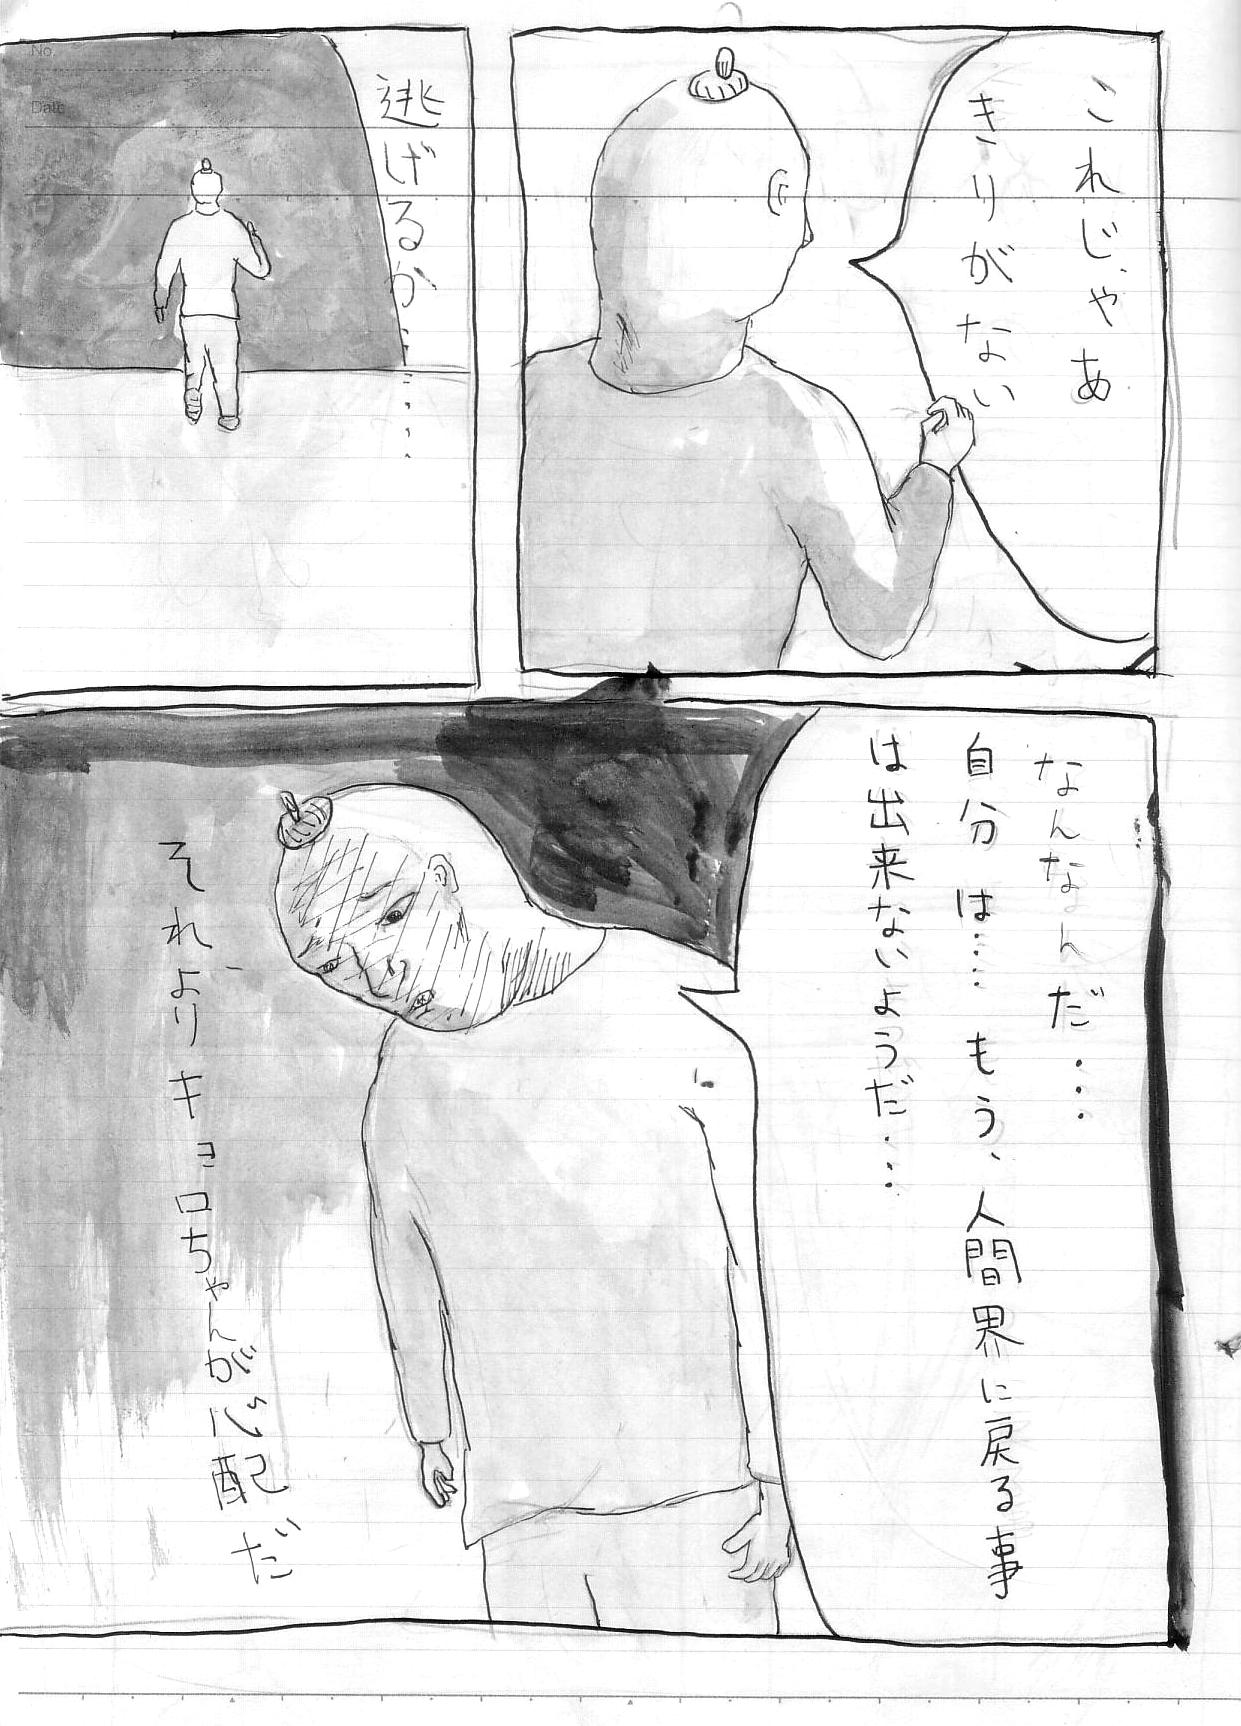 これじゃあ
きりがない
逃げるか・・・・・・
なんなんだ・・・
自分は・・・もう、人間界に戻る事
は出来ないようだ・・・
それよりキョロちゃんが心配だ
No.
Date